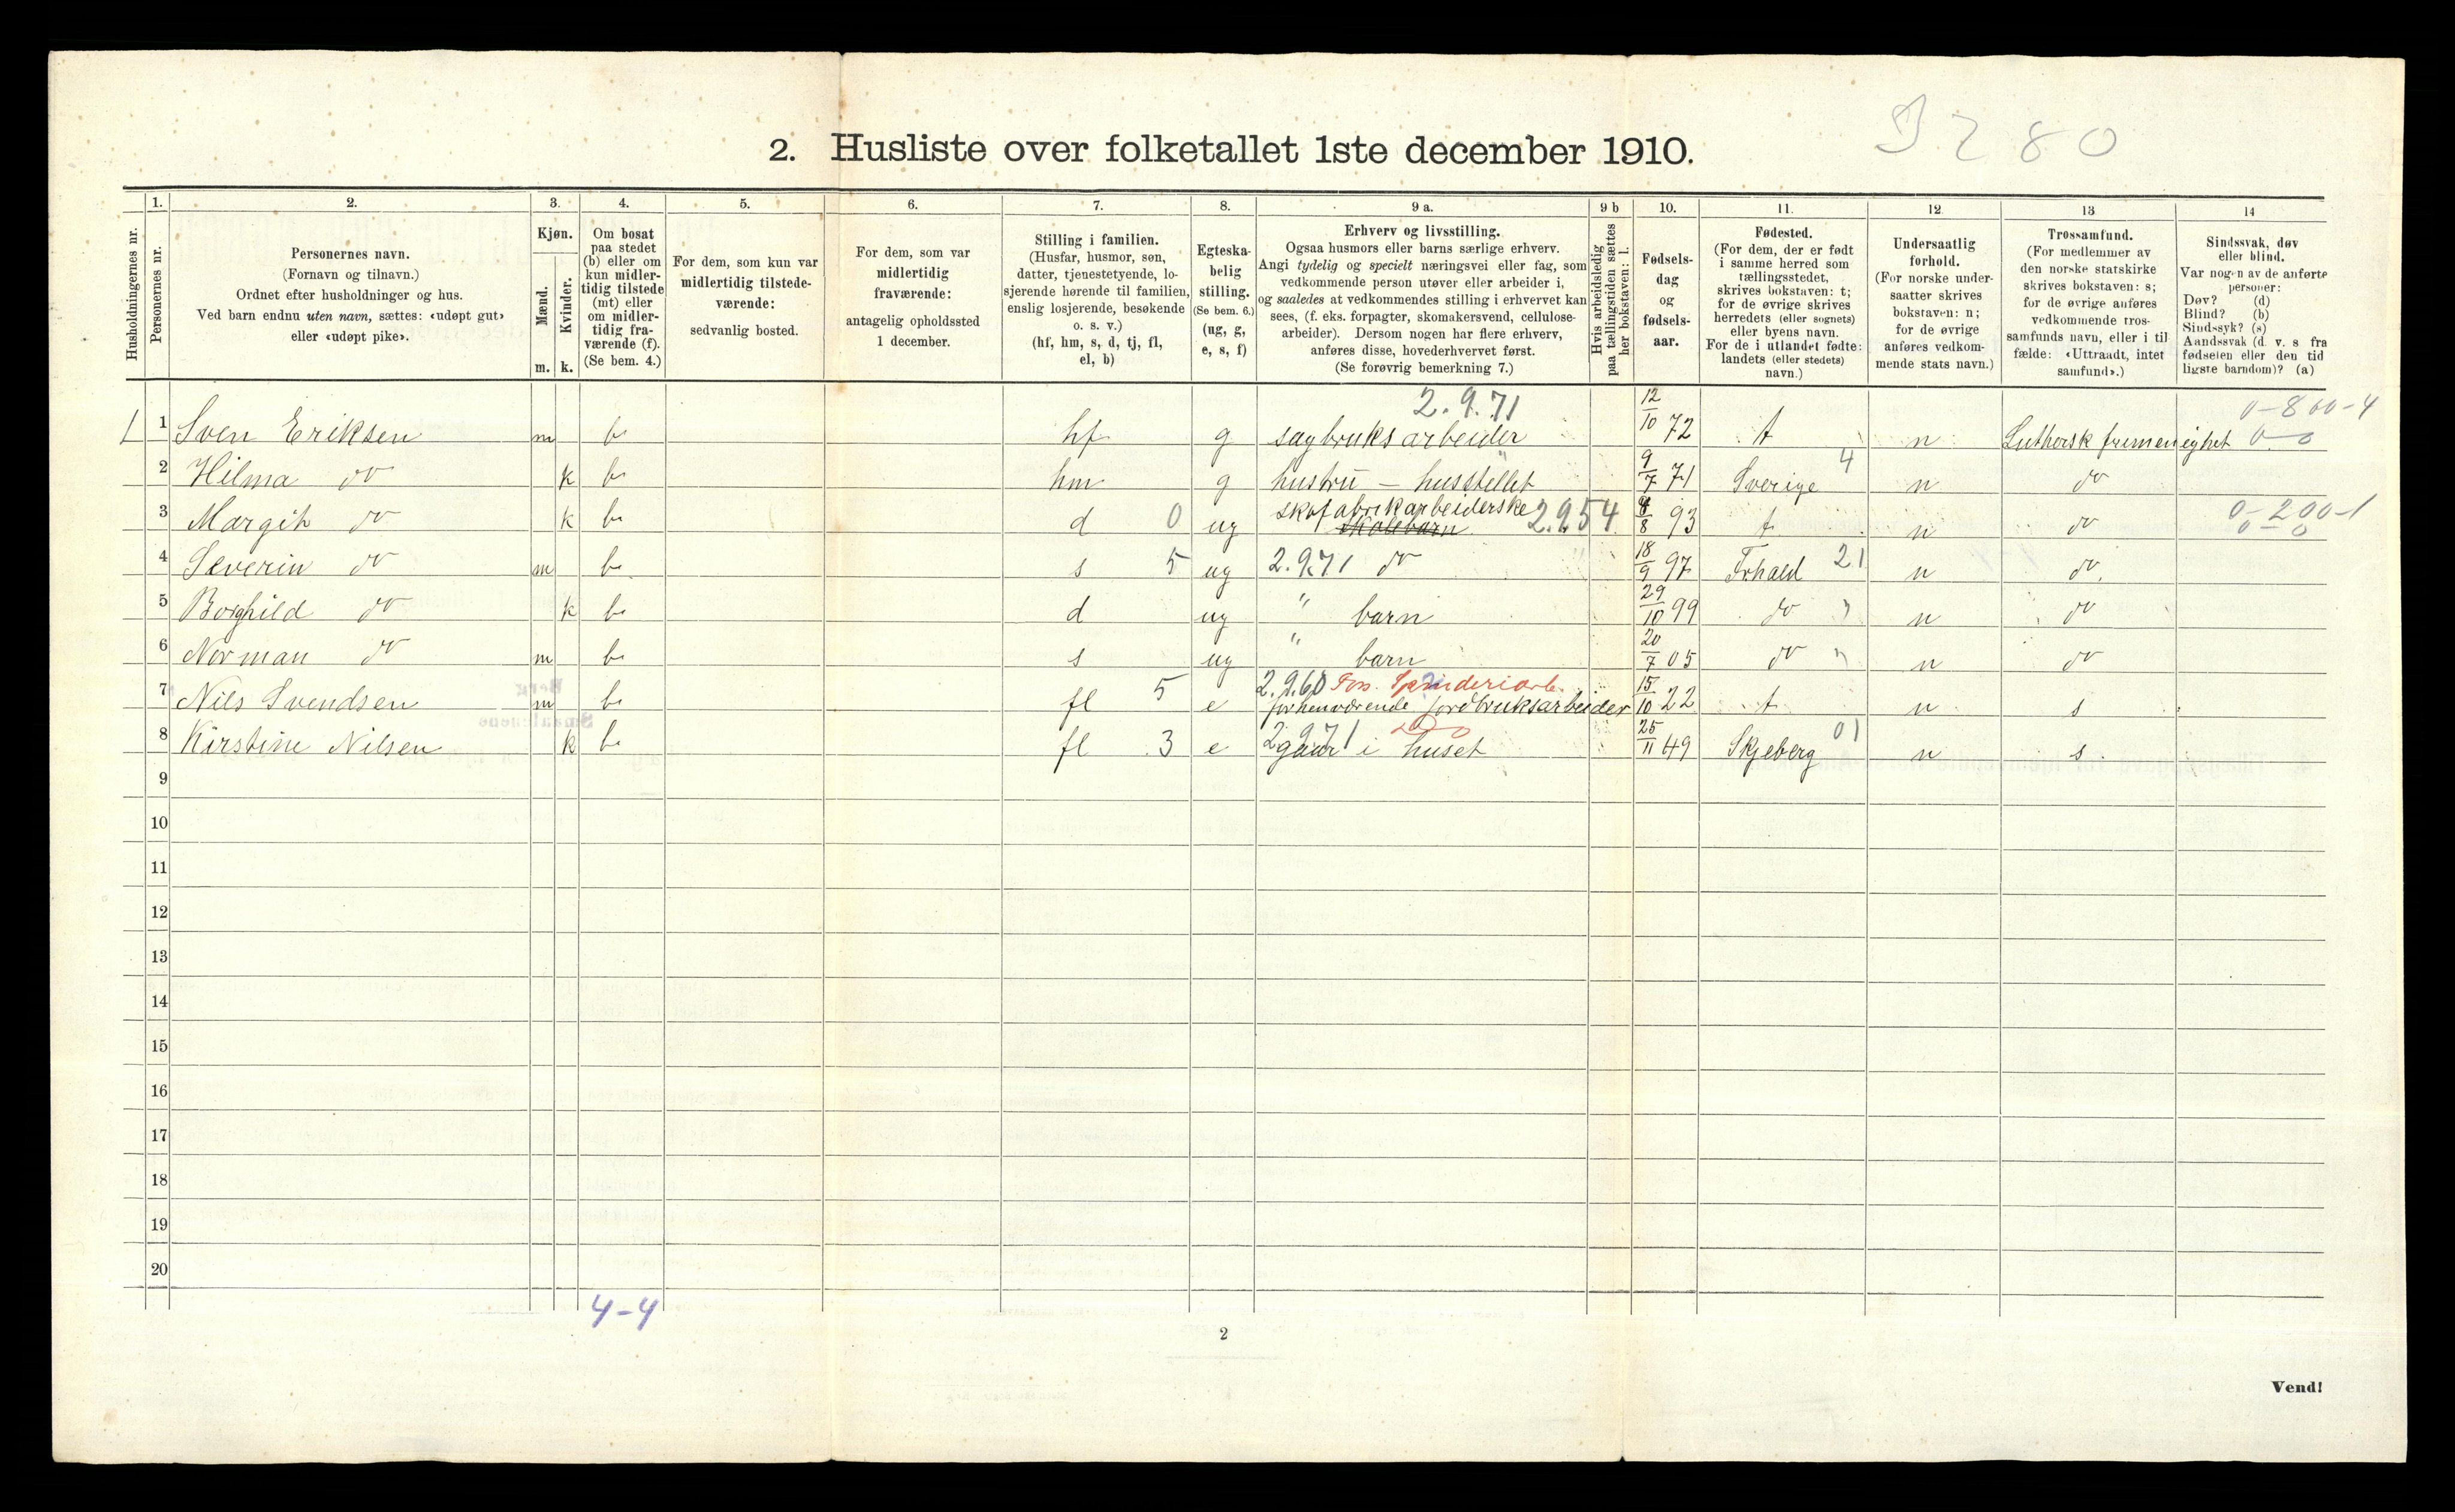 I 280
2. Husliste over folketallet 1ste december 1910.
Husholdningernes nr.
1. 2. 3. 4. 5. 6. 7. 8. 9 a. 9 b 10. 11. 12 13 14
Personernes nr.
Personernes navn.
(Fornavn og tilnavn.)
Ordnet efter husholdninger og hus.
Ved barn endnu uten navn, sættes: «udøpt gut»
eller «udøpt pike».
Kjøn.
Mænd. Kvinder.
m. k.
Om bosat
paa stedet
(b) eller om
kun midler-
tidig tilstede
(mt) eller
om midler-
tidig fra-
værende (f).
(Se bem. 4.)
For dem, som kun var
midlertidig tilstede-
værende:
sedvanlig bosted.
For dem, som var
midlertidig
fraværende:
antagelig opholdssted
1 december.
Stilling i familien.
(Husfar, husmor, søn,
datter, tjenestetyende, lo-
sjerende hørende til familien,
enslig losjerende, besøkende
o. s. v.)
(hf, hm, s, d, tj, fl,
el, b)
Egteska-
belig
stilling.
(Se bem. 6.)
(ug, g,
e, s, f)
Erhverv og livsstilling.
Ogsaa husmors eller barns særlige erhverv.
Angi tydelig og specielt næringsvei eller fag, som
vedkommende person utøver eller arbeider i,
og saaledes at vedkommendes stilling i erhvervet kan
sees, (f. eks. forpagter, skomakersvend, cellulose-
arbeider). Dersom nogen har flere erhverv,
anføres disse, hovederhvervet først.
(Se forøvrig bemerkning 7.)
Hvis arbeidsledig
paa tællingstiden sættes
her bokstaven: l.
Fødsels-
dag
og
fødsels-
aar.
Fødested.
(For dem, der er født
i samme herred som
tællingsstedet,
skrives bokstaven: t;
for de øvrige skrives
herredets (eller sognets)
eller byens navn.
For de i utlandet fødte:
landets (eller stedets)
navn.)
Undersaatlig
forhold.
(For norske under-
saatter skrives
bokstaven: n;
for de øvrige
anføres vedkom-
mende stats navn.)
Trossamfund.
(For medlemmer av
den norske statskirke
skrives bokstaven: s;
for de øvrige anføres
vedkommende tros-
samfunds navn, eller i til
fælde: «Uttraadt, intet
samfund».)
Sindssvak, døv
eller blind.
Var nogen av de anførte
personer:
Døv? (d)
Blind? (b)
Sindssyk? (s)
Aandssvak (d. v. s fra
fødselen eller den tid
ligste barndom)? (a)
2.9.71 0-800-4
1 1 Sven Eriksen m b hf g sagbruks arbeider 12/10 72 t n Luthersk frimenighet 0-0
2 Hilma do k b hm g hustru - husstellet 9/7 71 Sverige 4 n do
skofabrikarbeiderske 0-200-1
3 Margit do k b d 0 ug skolebarn 2.954 8/8 93 t n do 0-0
4 Severin do m b s 5 ug 2.9.71 do 18/9 97 Frhald 21 n do
5 Borghild do k b d ug " barn 29/10 99 do " n do
6 Norman do m b s ug " barn 20/7 05 do " n do
2.9.60 Fos. Spinderiarb.
7 Nils Svendsen m b fl 5 e forhenværende jordbruksarbeider 15/10 22 t n s
8 Kirstine Nilsen k b fl 3 e 2.9.71 gaar i huset 25/11 49 Skjeberg 01 n s
9
10
11
12
13
14
15
16
17
18
19
20
4-4
2
Vend!